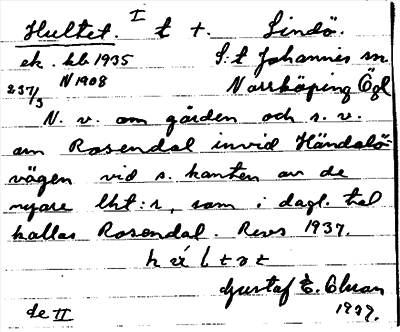 Hultet. I t +. Lindö.
ek. kb 1935 S:t Johannis sn.
237/3 N 1908 Norrköping Ögl
N. v. om gården och s. v.
om Rosendal invid Händelö-
vägen vid s. kanten av de
nyare lht:r, som i dagl. tal
kallas Rosendal. Revs 1937.
Gustaf E. Olsson
1937.
de II